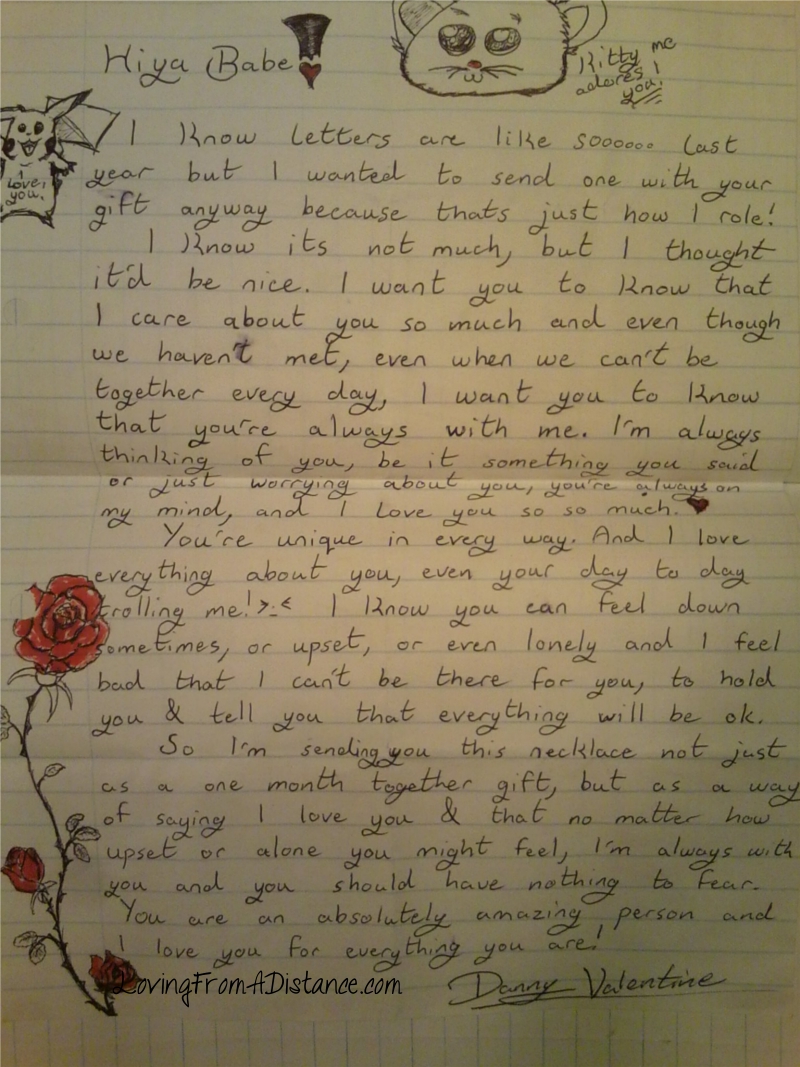 Hiya Babe
Kitty me
adores !
you!
I
love
you.
I know letters are like soooooo last
year but I wanted to send one with your
gift anyway because thats just how I role!
I know its not much, but I thought
it'd be nice. I want you to know that
I care about you so much and even though
we haven't met, even when we can't be
together every day, I want you to know
that you're always with me. I'm always
thinking of you, be it something you said
or just worrying about you, you're always on
my mind, and I love you so so much.
You're unique in every way. And I love
everything about you, even your day to day
trolling me! >.< I know you can feel down
sometimes, or upset, or even lonely and I feel
bad that I can't be there for you, to hold
you & tell you that everything will be ok.
So I'm sending you this necklace not just
as a one month together gift, but as a way
of saying I love you & that no matter how
upset or alone you might feel, I'm always with
you and you should have nothing to fear.
You are an absolutely amazing person and
I love you for everything you are!
LovingFromADistance.com
Danny Valentine